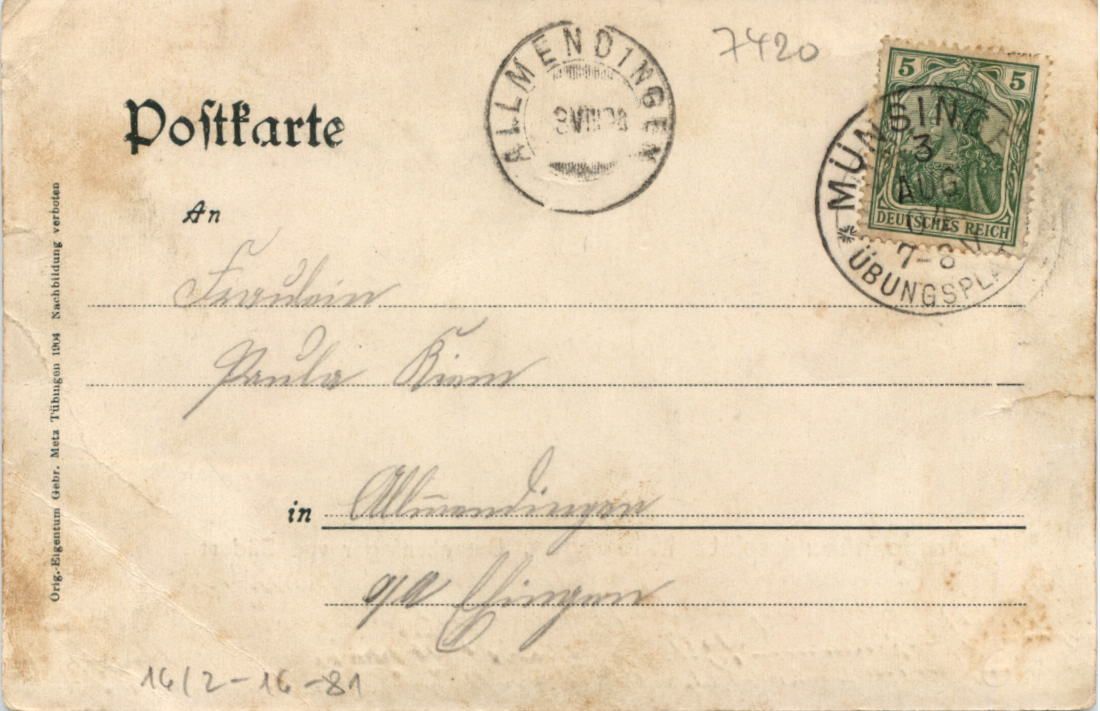 7420
ALLMENDINGEN
5 5
DEUTSCHES REICH
MÜNSING
3
AUG
7-8 N
ÜBUNGSPLA
Postkarte
An
Fräulein
Paula
in Allmendingen
O/A Ehingen
Orig.-Eigentum Gebr. Metz Tübingen 1904 Nachbildung verboten
16/2-16-81